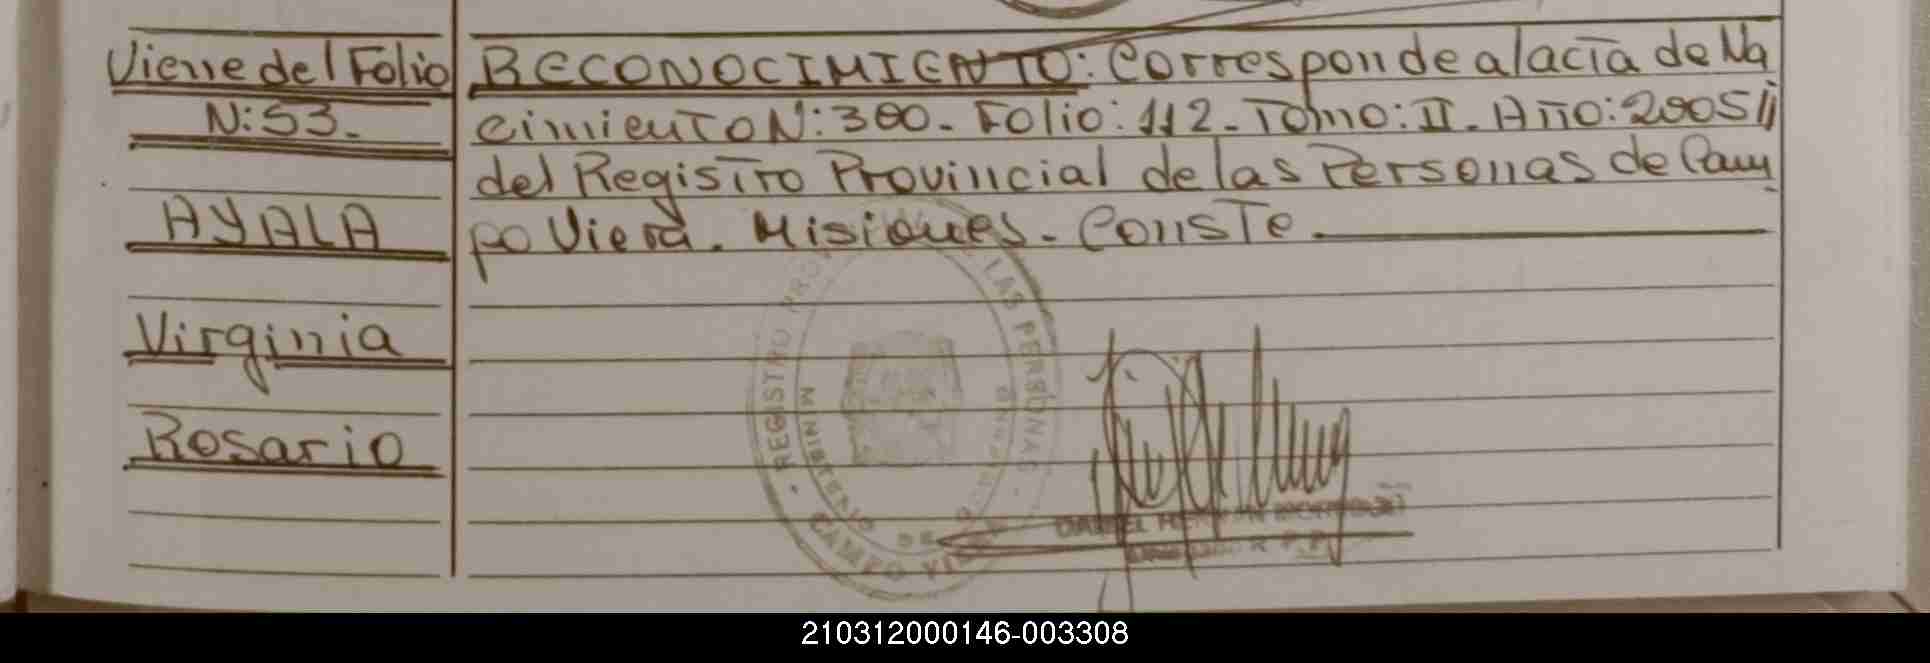 Viene del Folio
N:53.-
AYALA
Virginia
Rosario
RECONOCIMIENTO: Corresponde al acta de Na
cimiento N:380.- Folio:112.- Tomo:II.- Año:2005//
del Registro Provincial de las Personas de Cam
po Viera. Misiones.- Conste.
REGISTRO PROV LAS PERSONAS
MINISTERIO DE
CAMPO VIERA
210312000146-003308